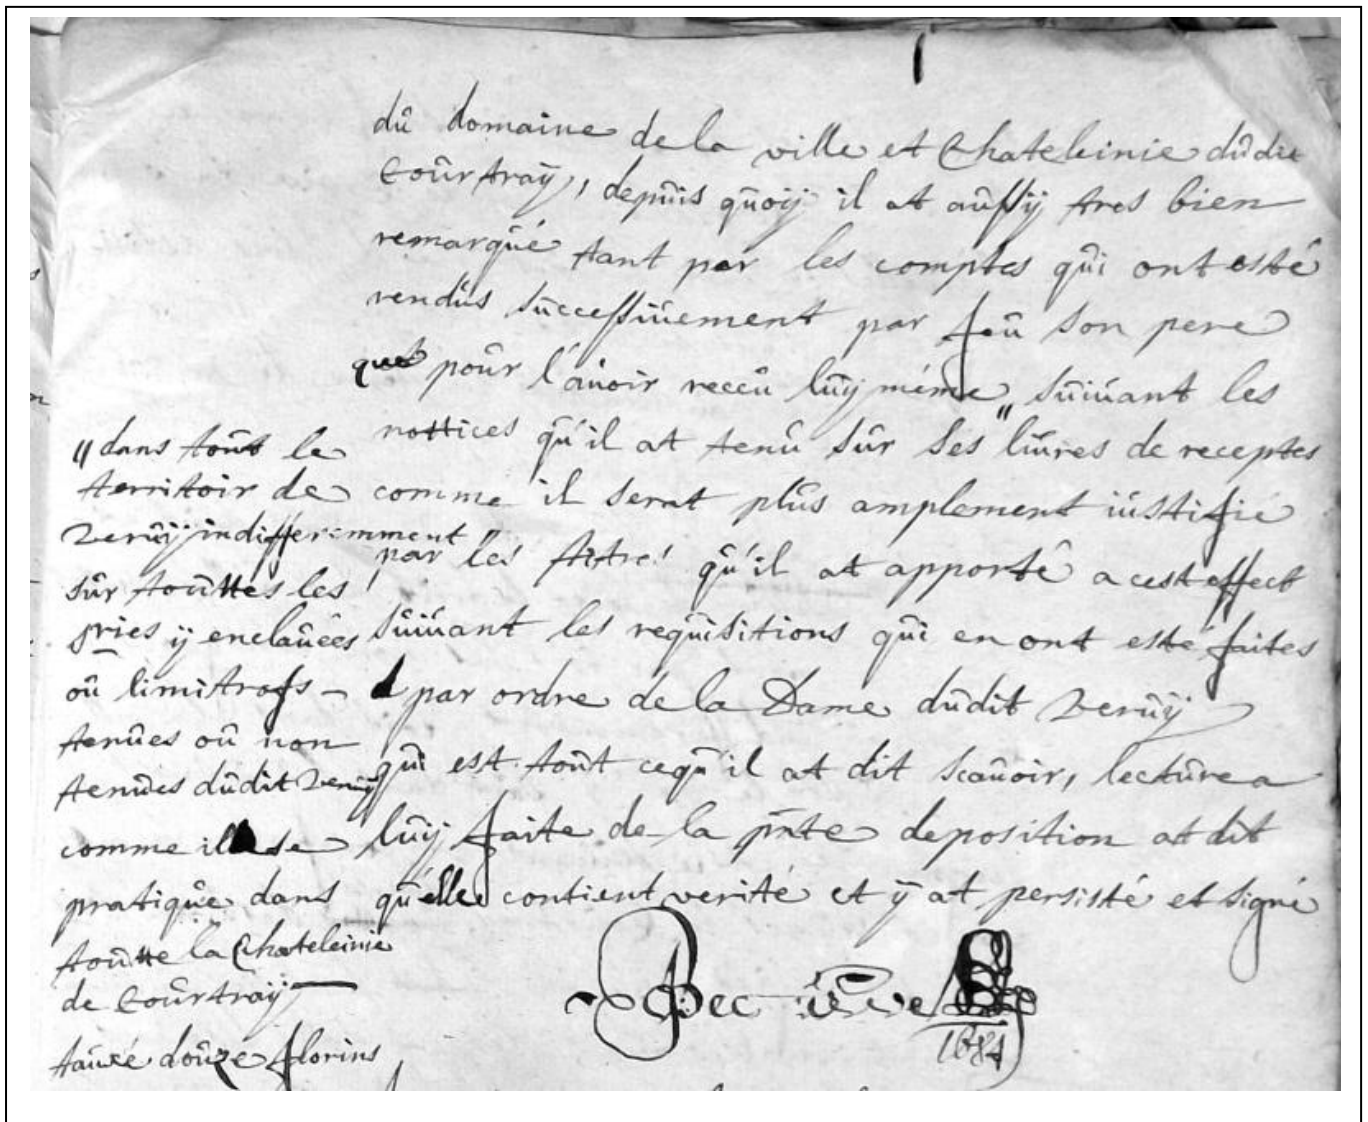 dû domaine de la ville et Chateleinie dûdit
Coûrtraÿ, depûis qûoÿ il at aûssÿ tres bien
remarqûé tant par les comptes qûi ont esté
rendûs sûccessiûement par feû son pere
que poûr l'aûoir receû lûÿ méme, sûiûant les
nottices qû'il at tenû sûr ses " liûres de receptes
comme il serat plûs amplement iûstifié
par les tittres qû'il at apporté a cest effect
sûiûant les reqûisitions qûi en ont esté faites
par ordre de la Dame dûdit Verûÿ
qûi est toût ceqû'il at dit scaûoir, lectûre a
lûÿ faite de la pnte deposition at dit
qû'elle contient verité et ÿ at persisté et signé
1684
" dans toût le
territoir de
Verûÿ indifferemment
sûr toûttes les
sries ÿ enclaûées
oû limitrofs
tenûes oû non
tenûes dûdit Verûÿ
comme il se
pratiqûe dans
toûtte la Chateleinie
de Coûrtraÿ
taûxé doûze florins